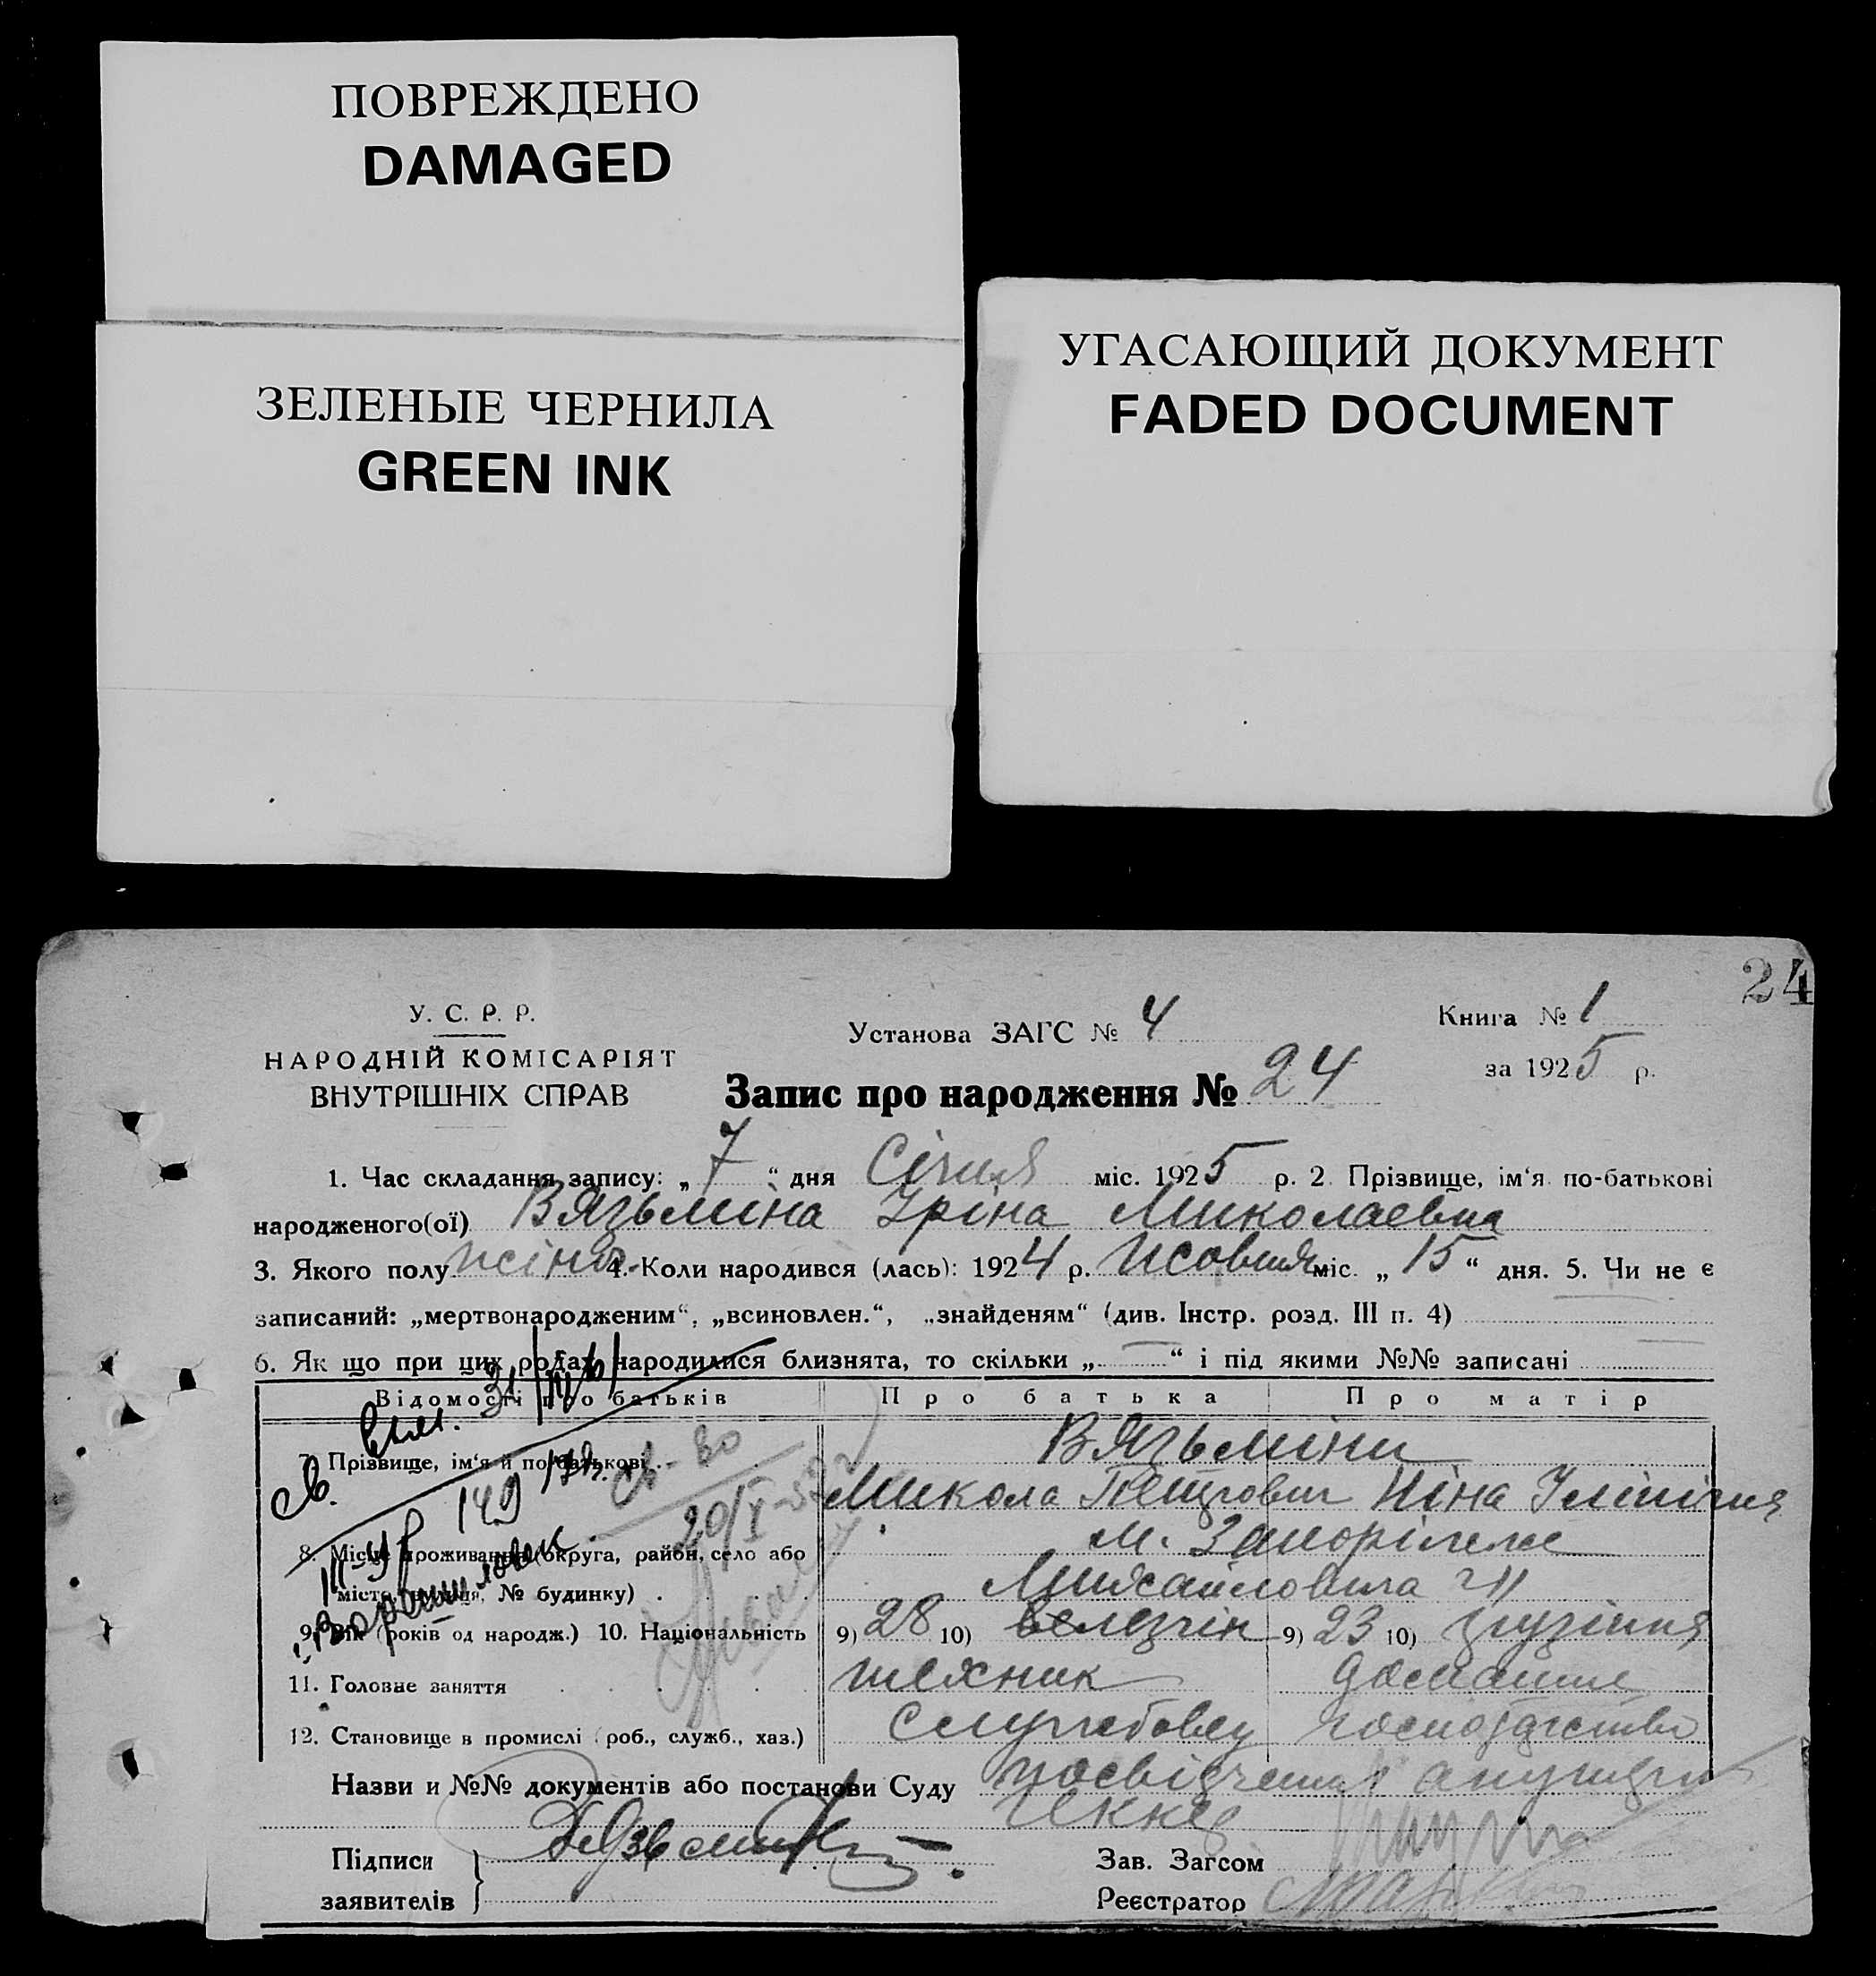 ПОВРЕЖДЕНО
DAMAGED
ЗЕЛЕНЫЕ ЧЕРНИЛА
GREEN INK
УГАСАЮЩИЙ ДОКУМЕНТ
FADED DOCUMENT
24
У. С. Р. Р.
НАРОДНІЙ КОМІСАРІЯТ
ВНУТРІШНІХ СПРАВ
Установа ЗАГС № 4
Книга № 1
за 1925 р.
Запис про народження № 24
1. Час складання запису: „7“ дня Січня міс. 1925 р. 2. Прізвище, ім'я по-батькові
народженого(ої) Вязьміна Іріна Миколаевна
3. Якого полу жіноч. 4. Коли народився (лась): 1924 р. Жовтня міс. „15“ дня. 5. Чи не є
записаний: „мертвонародженим“, „всиновлен.“, „знайденям“ (див. Інстр. розд. III п. 4)
6. Як що при цих родах народилися близнята, то скільки „—“ і під якими №№ записані —
Відомості про батьків Про батька Про матір
7. Прізвище, ім'я й по-батькові Вязьміни
Микола Петрович Ніна
8. Місце проживання (округа, район, село або м. Запоріжже
місто, вулиця, № будинку)
9. Вік (років од народж.) 10. Національність 9) 28 10) 9) 23 10) грузінка
11. Головне заняття технік домашне
12. Становище в промислі (роб., служб., хаз.) службовец господарство
Назви и №№ документів або постанови Суду посвідчення
Підписи
заявителів
Зав. Загсом
Реєстратор
св. 149